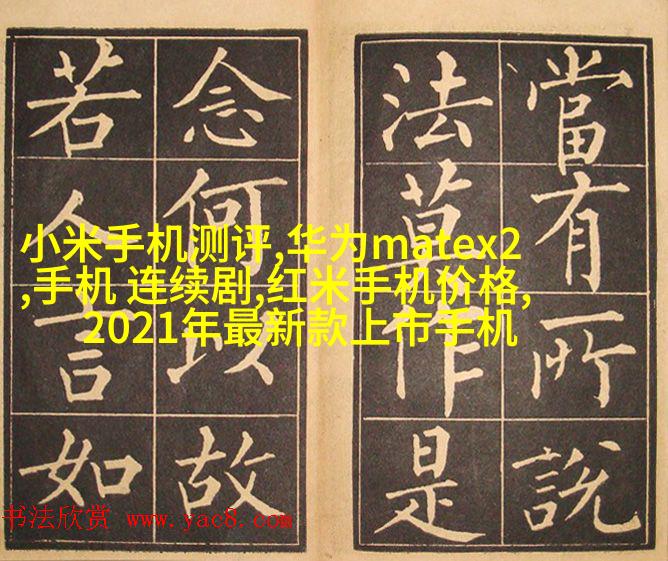 小米手机测评,华为matex2
,手机 连续剧,红米手机价格,
2021年最新款上市手机
當有所說
法莫作是
念何以故
若人言如
书法欣赏 www.yac8.com